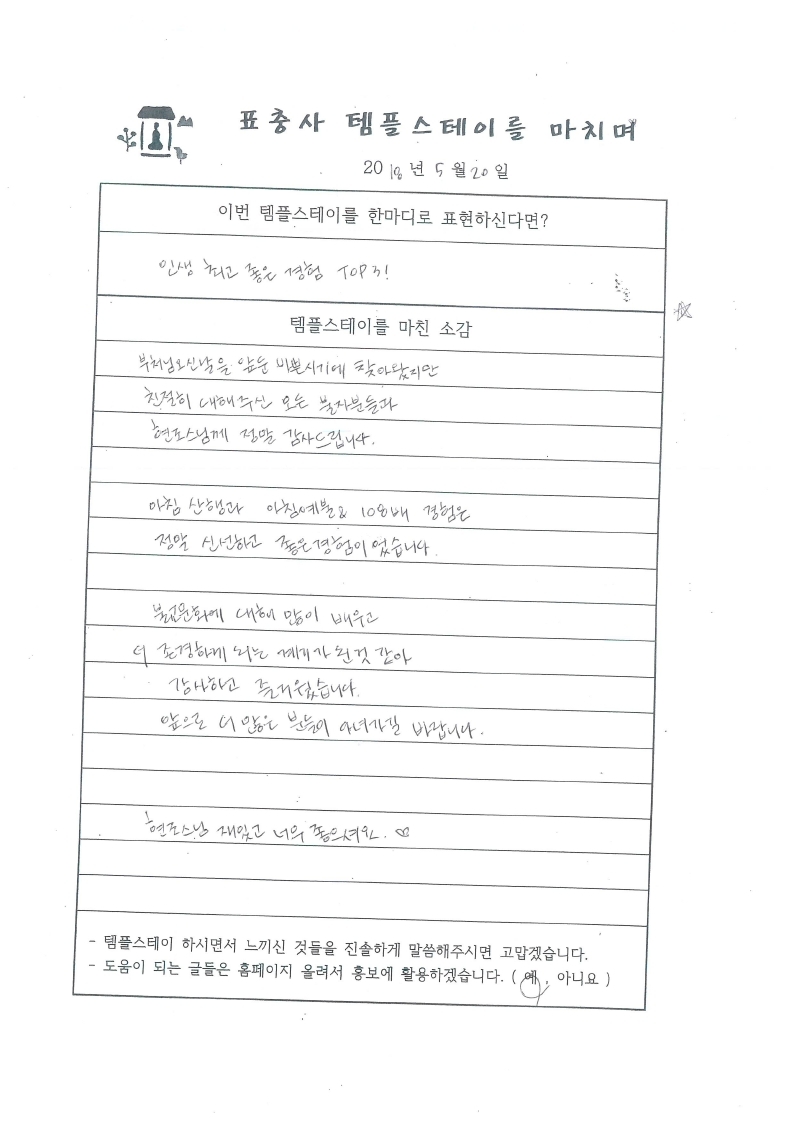 표충사 템플스테이를 마치며
2018년 5월 20일
이번 템플스테이를 한마디로 표현하신다면?
인생 최고 좋은 경험 TOP3!
템플스테이를 마친 소감
부처님오신날을 앞둔 바쁜시기에 찾아왔지만
친절히 대해주신 모든 불자분들과
현조스님께 정말 감사드립니다.
아침 산행과 아침예불& 108배 경험은
정말 신선하고 좋은경험이었습니다.
불교문화에 대해 많이 배우고
더 존경하게 되는 계기가 된것 같아
감사하고 즐거웠습니다.
앞으로 더 많은 분들이 다녀가길 바랍니다.
현조스님 재밌고 너무 좋으셔요. ♡
- 템플스테이 하시면서 느끼신 것들을 진솔하게 말씀해주시면 고맙겠습니다.
- 도움이 되는 글들은 홈페이지 올려서 홍보에 활용하겠습니다. ( 예 , 아니요 )